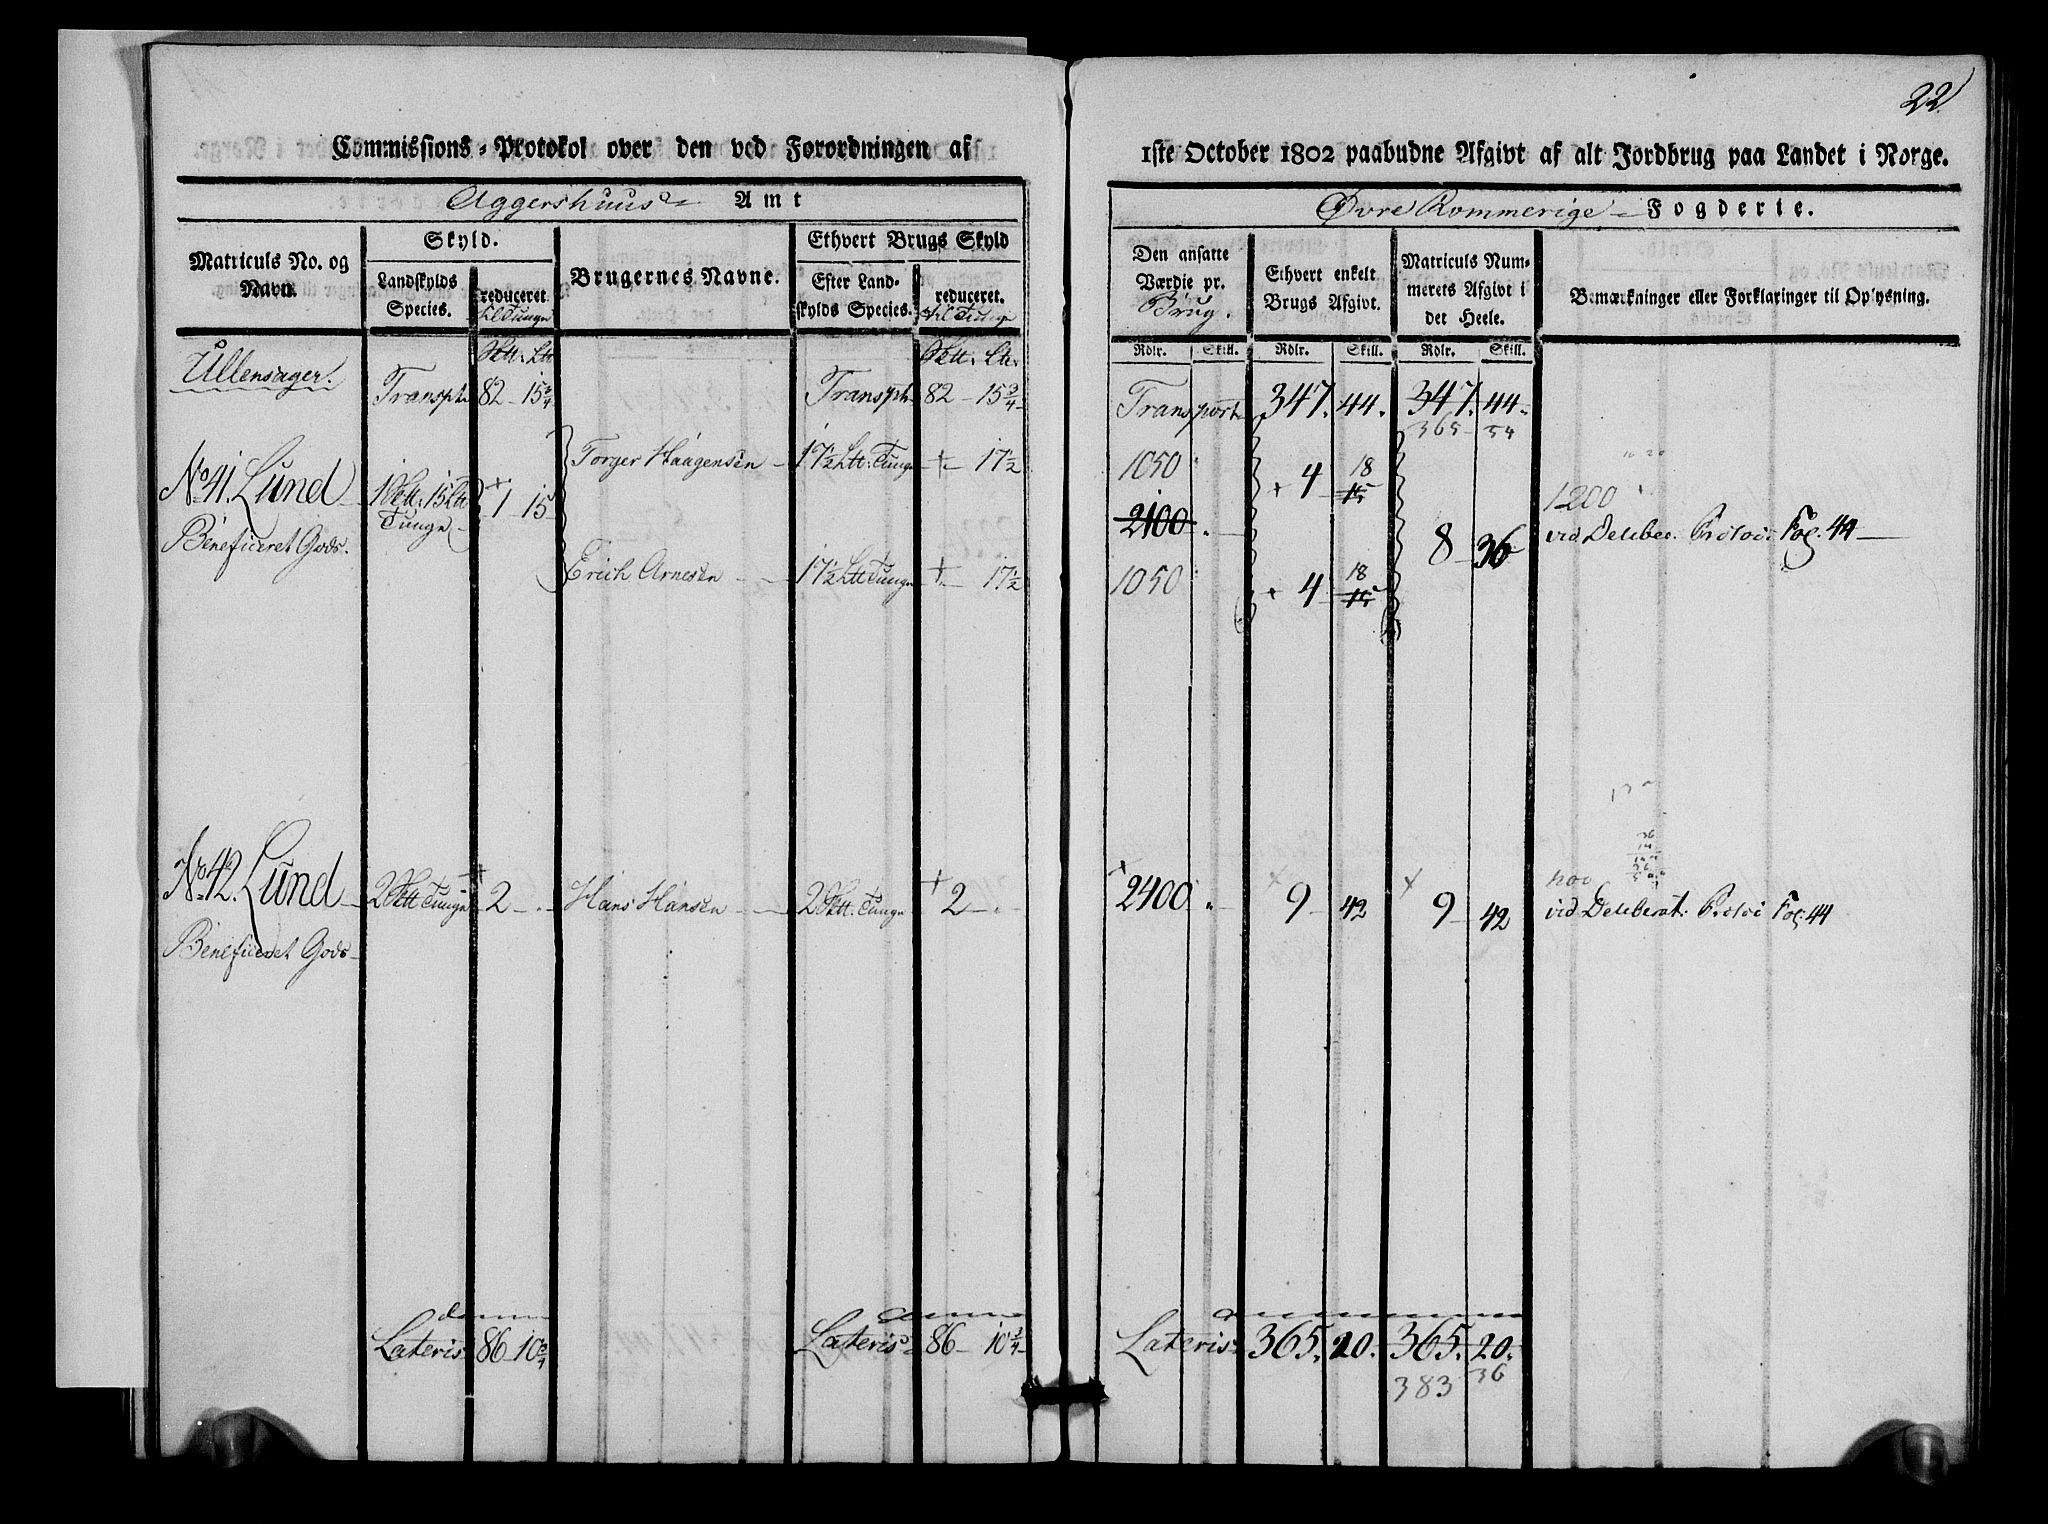 22.
Commissions-Protokol over den ved Forordningen af 1ste October 1802 paabudne Afgivt af alt Jordbrug paa Landet i Norge.
Aggershuus Amt
Øvre Rommerige Fogderie.
Matriculs No. og Navn.
Skyld.
Landskylds Species.
reduceret til Tunge
Brugernes Navne.
Ethvert Brugs Skyld
Efter Landskylds Species.
reduceret. til Tunge
Den ansatte Værdie pr. Brug.
Ethvert enkelt Brugs Afgivt.
Matriculs Nummerets Afgivt i det Heele.
Bemærkninger eller Forklaringer til Oplysning.
Rdlr. Skill. Rdlr. Skill. Rdlr. Skill.
Ullensager.
Transpt. 82 - 15 3/4 Transpt. 82 - 15 3/4 Transport 347. 44. 347. 44.
365 - 54
Torger Haagensen 17 1/2 Ltt: Tunge + 17 1/2 1050 + 4 18 15
No. 41. Lund 1 Sktt. 15 Ltt Tunge + 1 15 2100 8 36 1200
Beneficeret Gods. vid Deleber. Protoc: Fog. 44
Erich Arnesen 17 1/2 Ltt Tunge + 17 1/2 1050 + 4 18 15
No. 42. Lund 2 Sktt Tunge + 2 Hans Hansen 2 Sktt. Tunge + 2 + 2400 + 9 42 + 9 42 vid Deleberat: Protoc Fog: 44
Beneficeret Gods
Lateris 86 10 3/4 Lateris 86 - 10 3/4 Lateris 365. 20. 365. 20.
383 36